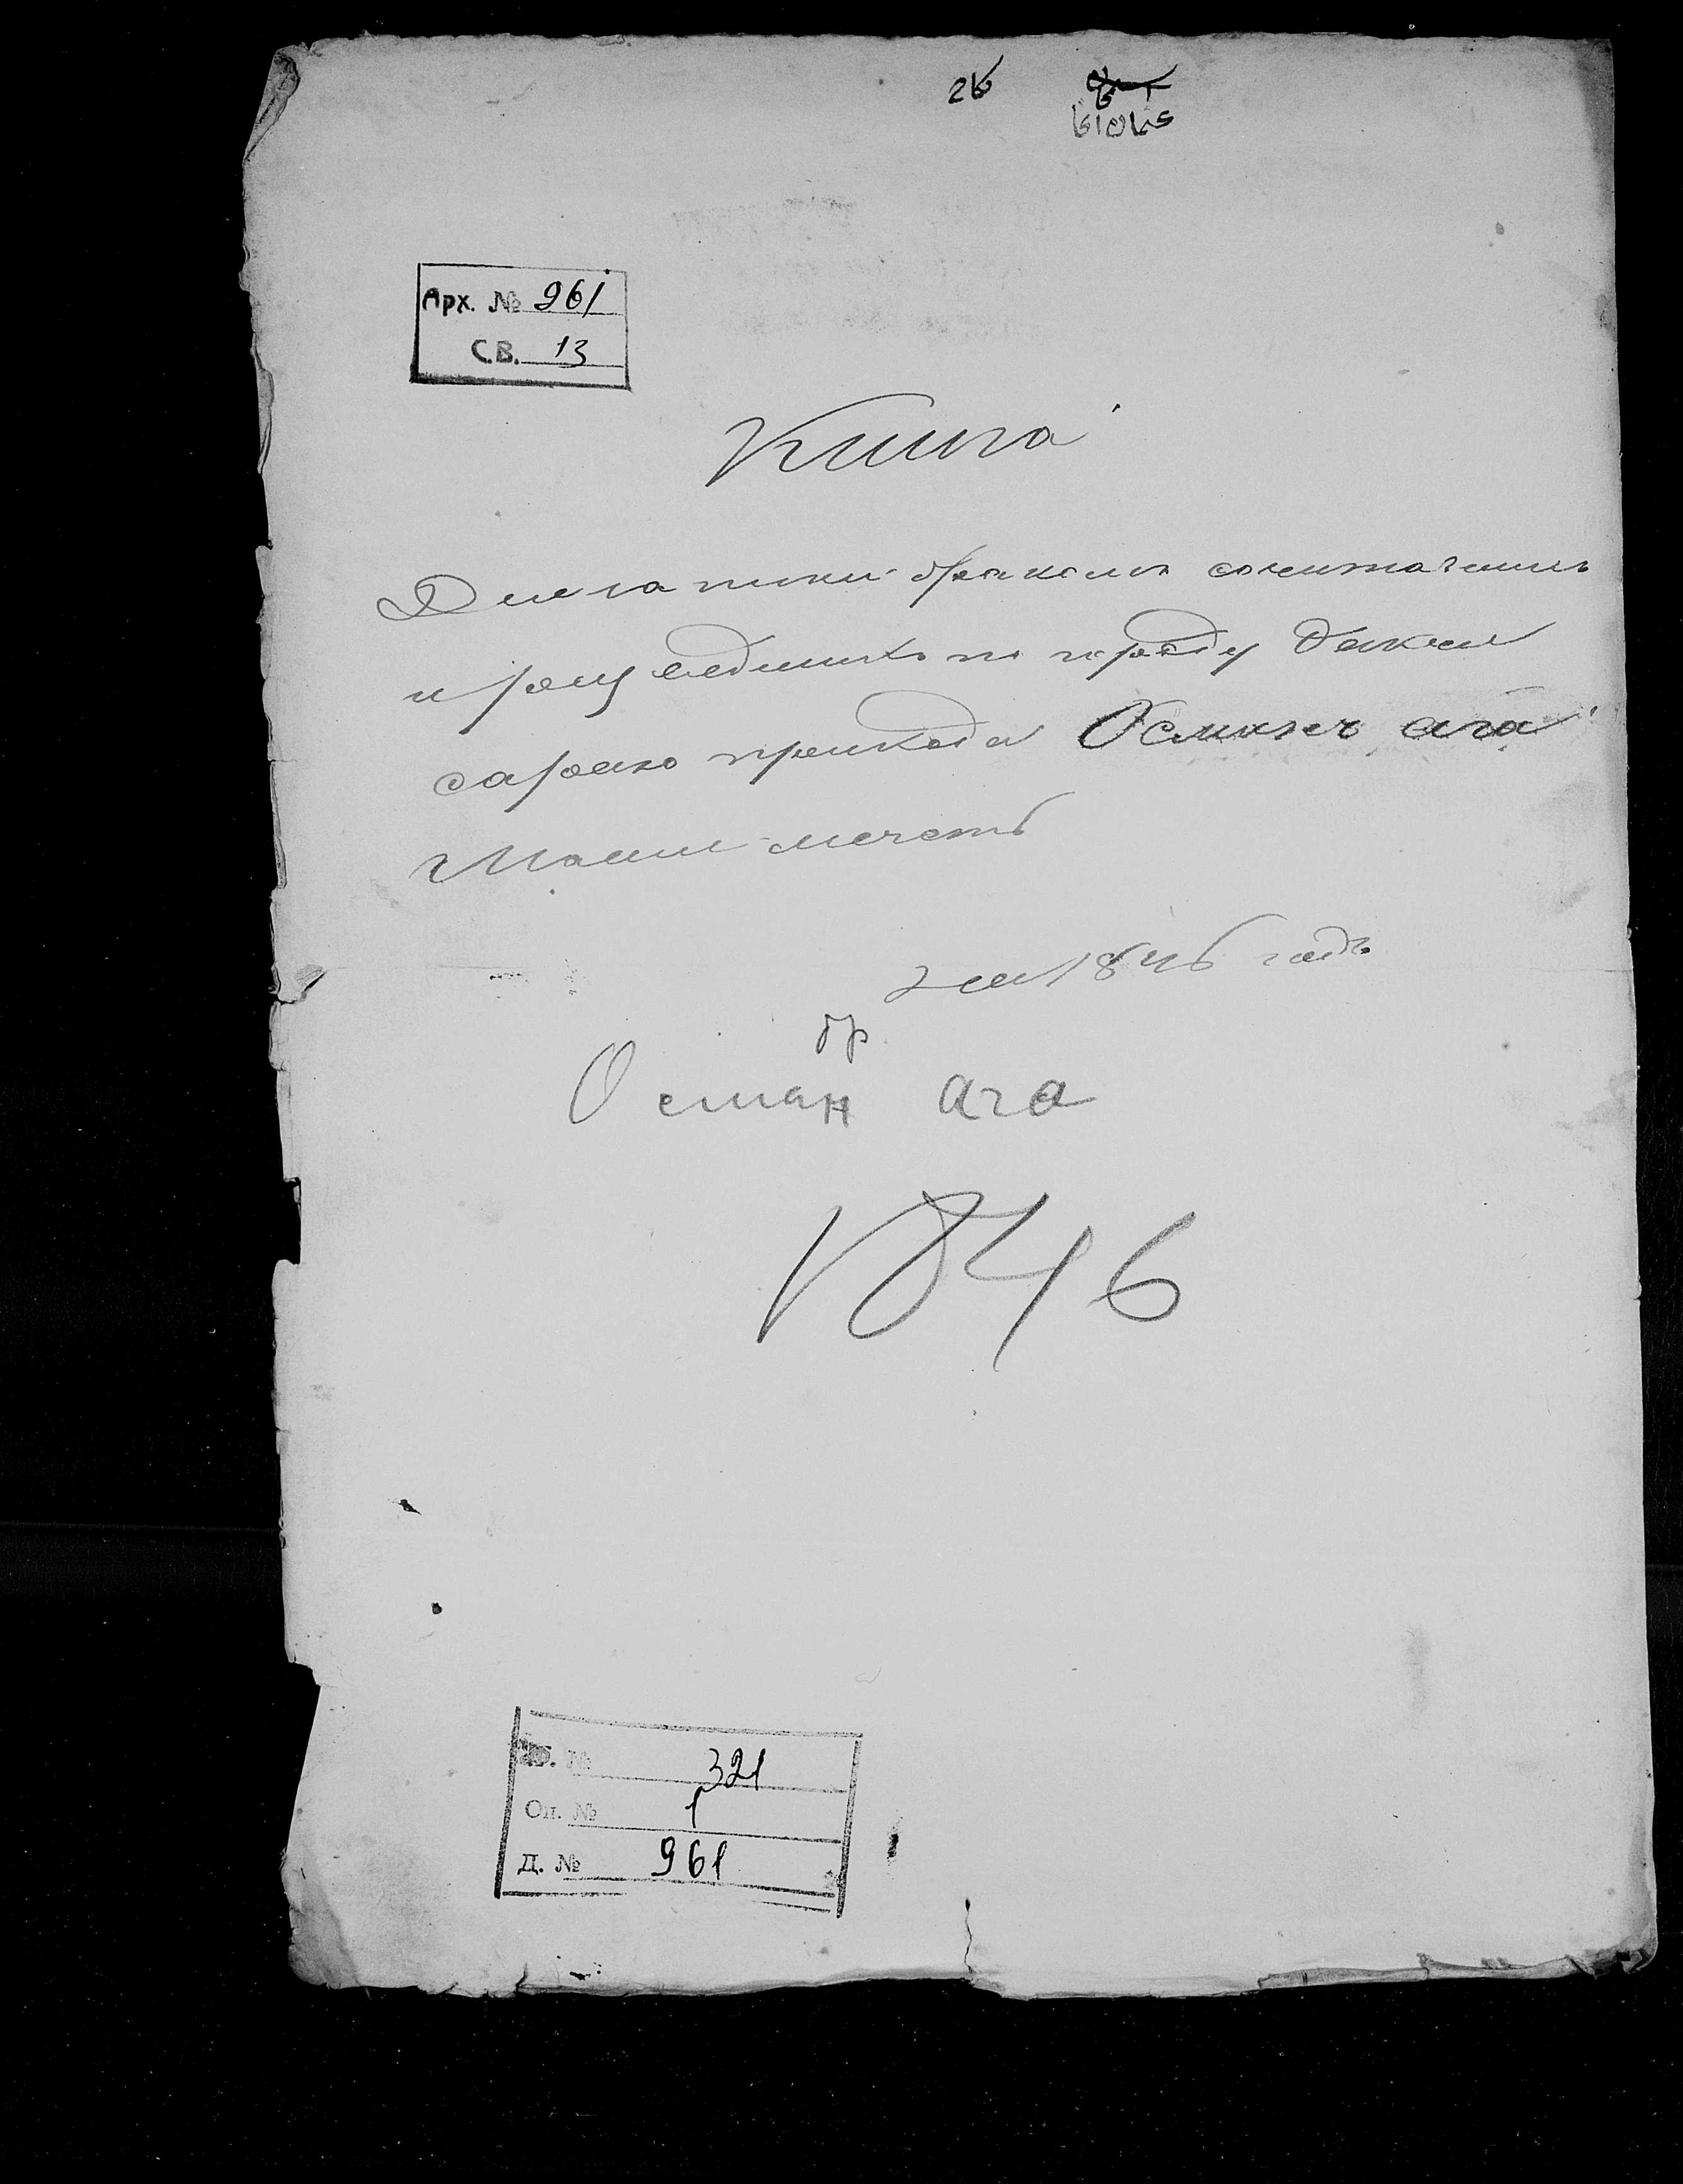 26
Арх. № 961
С.В. 13
Книга
Для записки бракомъ сочитачших
и розведшихъ по городу Бакчи
сараю прихода Османъ ага
мечеть
на 1846 годъ
бр
Осман ага
1846
№ 321
Оп. № 1
Д. № 961